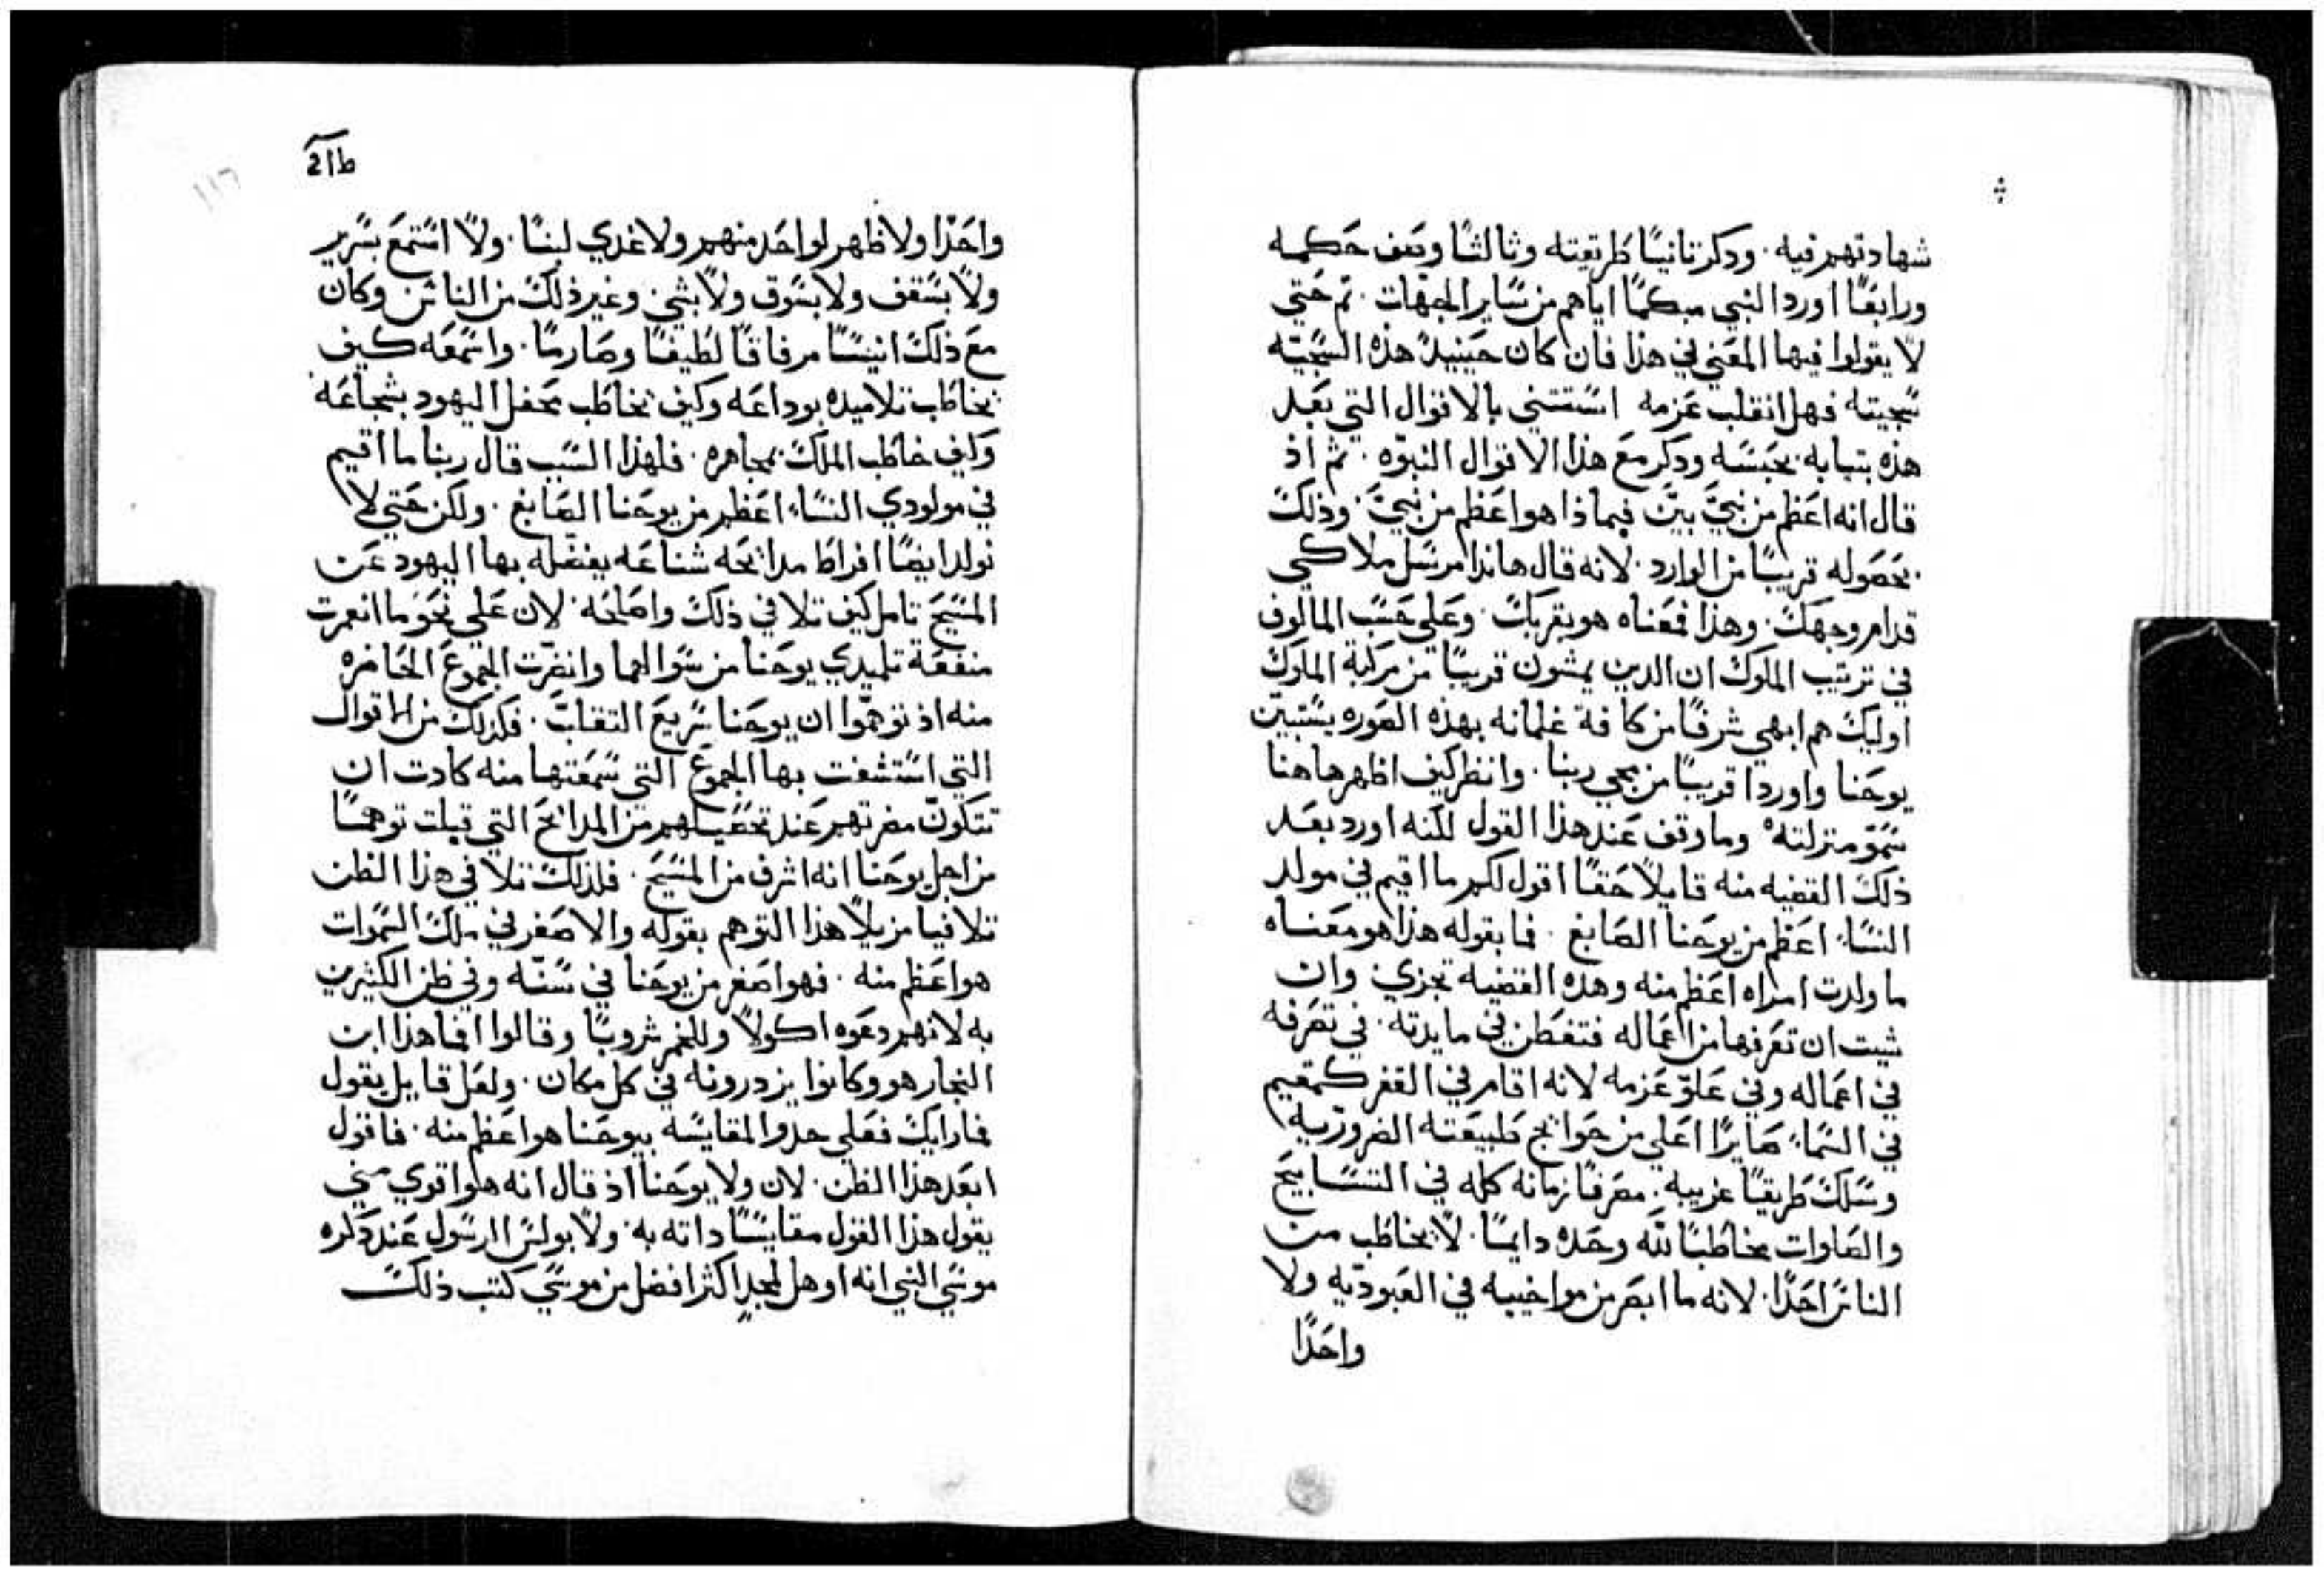 شهادتهم فيه. ودكر تانيًا طريقته وثالثًا وصف حكمه
ورابعًا اورد النبي مبكمًا اياهم من ساير الجهات. تم حتي
لا يقولوا فيها المعني في هذا فان كان حينيدً هذه السجيته
سجيته فهل انقلب عزمه استتني بالاقوال التي بعد
هذه بتبابه بحبسه ودكر مع هذا الاقوال النبوّه. ثم اذ
قال انه اعظم من نبيّ بيّن فيماذا هو اعظم من نبيّ. وذلك
بحصوله قريبًا من الوارد. لانه قال هاندا مرسل ملاكي
قدام وجهك. وهذا فمعناه هو بقربك. وعلي حسب المالوف
في ترتيب الملوك ان الدين يمشون قريبًا من مركبة الملوك
اوليك هم ابهي شرفًا من كافة غلمانه بهذه الصوره يستبين
يوحنا واوردا قريبًا من مجي ربنا. وانظر كيف اظهر هاهنا
سموّ منزلته وما وقف عند هذا القول لكنه اورد بعد
ذلك القضيه منه قايلًا حقًا اقول لكم ما اقيم في مولد
النساء اعظم من يوحنا الصابغ. فما بقوله هذا هو معناه
ما ولدت امراه اعظم منه وهده القضيه تجزي وان
شيت ان تعرفها من اعماله فتفطن في مايدته. في تصرفه
في اعماله وفي علوّ عزمه لانه اقام في القفر كمقيم
في السماء صايرًا اعلي من حوايج طبيعته الضروريه
وسلك طريقًا غريبه. مصرفًا زمانه كله في التسابيح
والصلوات مخاطبًا لله وحده دايمًا. لا يخاطب من
الناس احدًا. لانه ما ابصر من مواخييه في العبوديه ولا
واحدًا
ط١٢
١١٦
واحدًا ولا ظهر لواحد منهم ولا غدي لبنًا. ولا استمع بسرير
ولا بسقف ولا بسوق ولا بشي وغير ذلك من الناس وكان
مع ذلك انيسًا مرفاقًا لطيفًا وصارمًا. واسمعه كيف
يخاطب تلاميده بوداعه وكيف يخاطب محفل اليهود بشجاعه
وكيف خاطب الملك بمجاهره. فلهذا السبب قال ربنا ما اقيم
في مولودي النساء اعظم من يوحنا الصابغ. ولكن حتي لا
تولد ايضًا افراط مدايحه شناعه يفضله بها اليهود عن
المسيح تامل كيف تلافي ذلك واصلحه. لان علي نحو ما انعمرت
منفعة تلميدي يوحنا من سوالهما وانضرت الجموع الحاضره
منه اذ توهموا ان يوحنا سريع التقلب. فكذلك من الاقوال
التي استشفت بها الجموع التي سمعتها منه كادت ان
تتكون مضرتهم عند تحصيلهم من المدايح التي قيلت توهمًا
من اجل يوحنا انه اشرف من المسيح. فلذلك تلافي هذا الظن
تلافيا مزيلًا هذا التوهم بقوله والاصغر في ملك السموات
هو اعظم منه. فهو اصغر من يوحنا في سنّه وفي ظن الكثيرين
به لانهم دعوه اكولًا وللخمر شروبًا وقالوا افما هذا ابن
النجار هو وكانوا يزدرونه في كل مكان. ولعل قايل يقول
فما رايك فعلي حدوا المقايسه بيوحنا هو اعظم منه. فاقول
ابعد هذا الظن. لان ولا يوحنا اذ قال انه هو اقوي مني
يقول هذا القول مقايسًا داته به. ولا بولس الرسول عند دكره
موسي النبي انه اوهل لمجدٍ اكثر افضل من موسي كتب ذلك